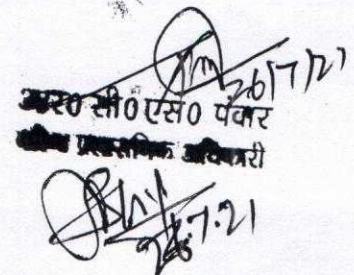 26/7/21
आर० सी० एस० पंवार
वरिष्ठ प्रशासनिक अधिकारी
26.7.21